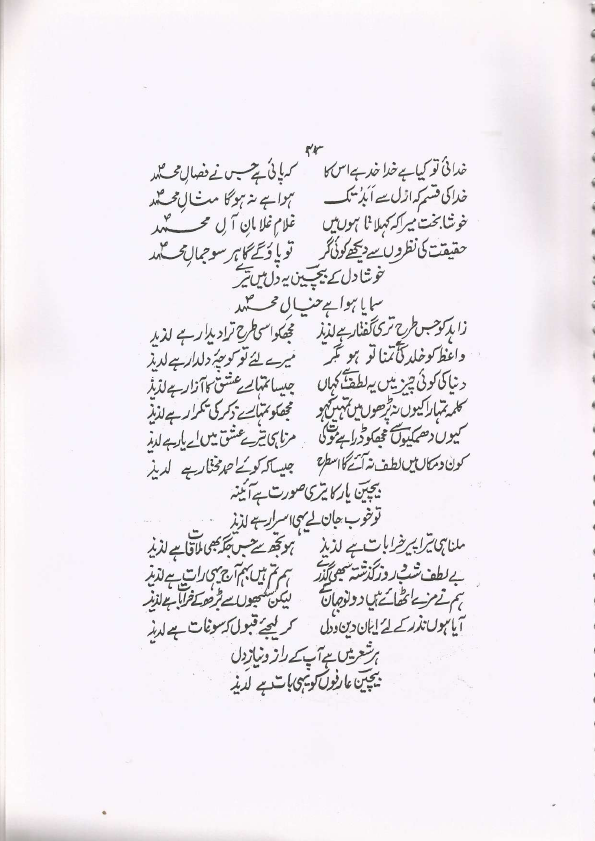 ۲۴
خدائی تو کیا ہے خدا خد ہے اس کا کہ پائی ہے جس نے فصالِ محمدؐ
خدا کی قسم کہ ازل سے اَبد تک ہوا ہے نہ ہوگا مثالِ محمدؐ
خوشا بخت میرا کہ کہلاتا ہوں میں غلامِ غلامانِ آلِ محمدؐ
حقیقت کی نظروں سے دیکھے کوئی گر تو پاؤگے گا ہر سو جمالِ محمدؐ
خوشا دل کے بیچین یہ دل میں تیرے
سمایا ہوا ہے خیالِ محمدؐ
زاہد کو جس طرح تری گفتار ہے لذیذ مجھکو اسی طرح ترا دیدار ہے لذیذ
واعظ کو خلد کی تمنا تو ہو مگر میرے لئے تو کوچۂ دلدار ہے لذیذ
دنیا کی کوئی چیز میں یہ لطف ہے کہاں جیسا تمہارے عشق کا آزار ہے لذیذ
کلمہ تمہارا کیوں نہ پڑھوں میں تمہیں کہو مجھکو تمہارے ذکر کی تکرار ہے لذیذ
کیوں دھمکیوں سے مجھکو ڈراہے موت کی مرنا ہی تیرے عشق میں اے یار ہے لذیذ
کون و مکاں میں لطف نہ آئے گا اسطرح جیسا کہ کوئے احمد مختار ہے لذیذ
بیچین یار کا تیری صورت ہے آئینہ
تو خوب جان لے یہی اسرار ہے لذیذ
ملنا ہی تیرا پیرِ خرابات ہے لذیذ ہو تجھ سے جس جگہ بھی ملاقات ہے لذیذ
بے لطف شب و روز گذشتہ سبھی گذرے ہم تم ہیں بہم آج یہی رات ہے لذیذ
ہم نے مزے اٹھائے ہیں دونو جہان کے لیکن سبھوں سے بڑھ کے خرابات ہے لذیذ
آیا ہوں نذر کے لئے ایمان و دین و دل کر لیجئے قبول کہ سوغات ہے لذیذ
ہر شعر میں ہے آپ کے راز و نیازِ دل
بیچین عارفوں کو یہی بات ہے لذیذ